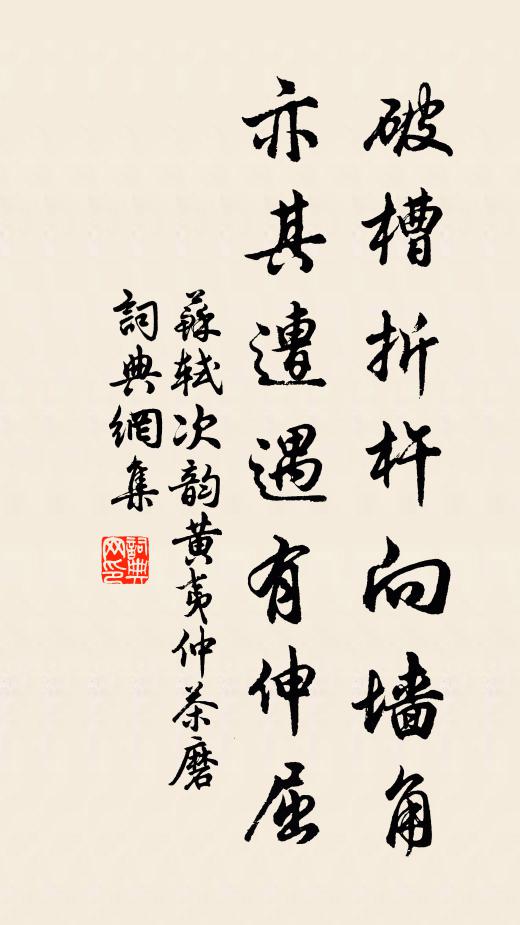 破槽折杵向墙角
亦其遭遇有伸屈
蘇軾次韵黄夷仲茶磨
詞典網集
詞典网印